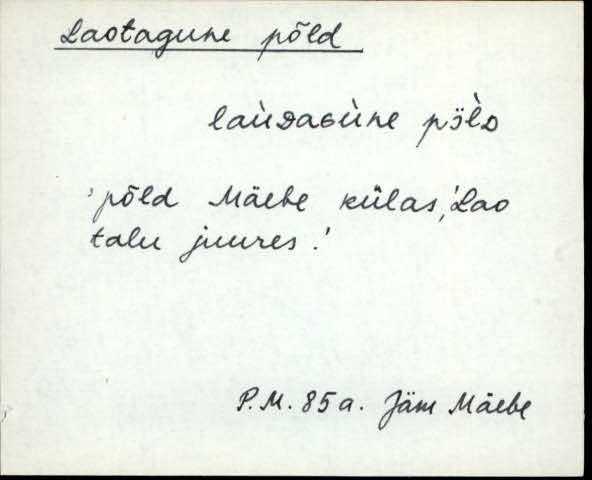 Laotagune põld
laùᴅaɢùne pɔ̈̀lᴅ
'põld Mäebe külas, Lao
talu juures.'
P.M. 85a. Jäm Mäebe